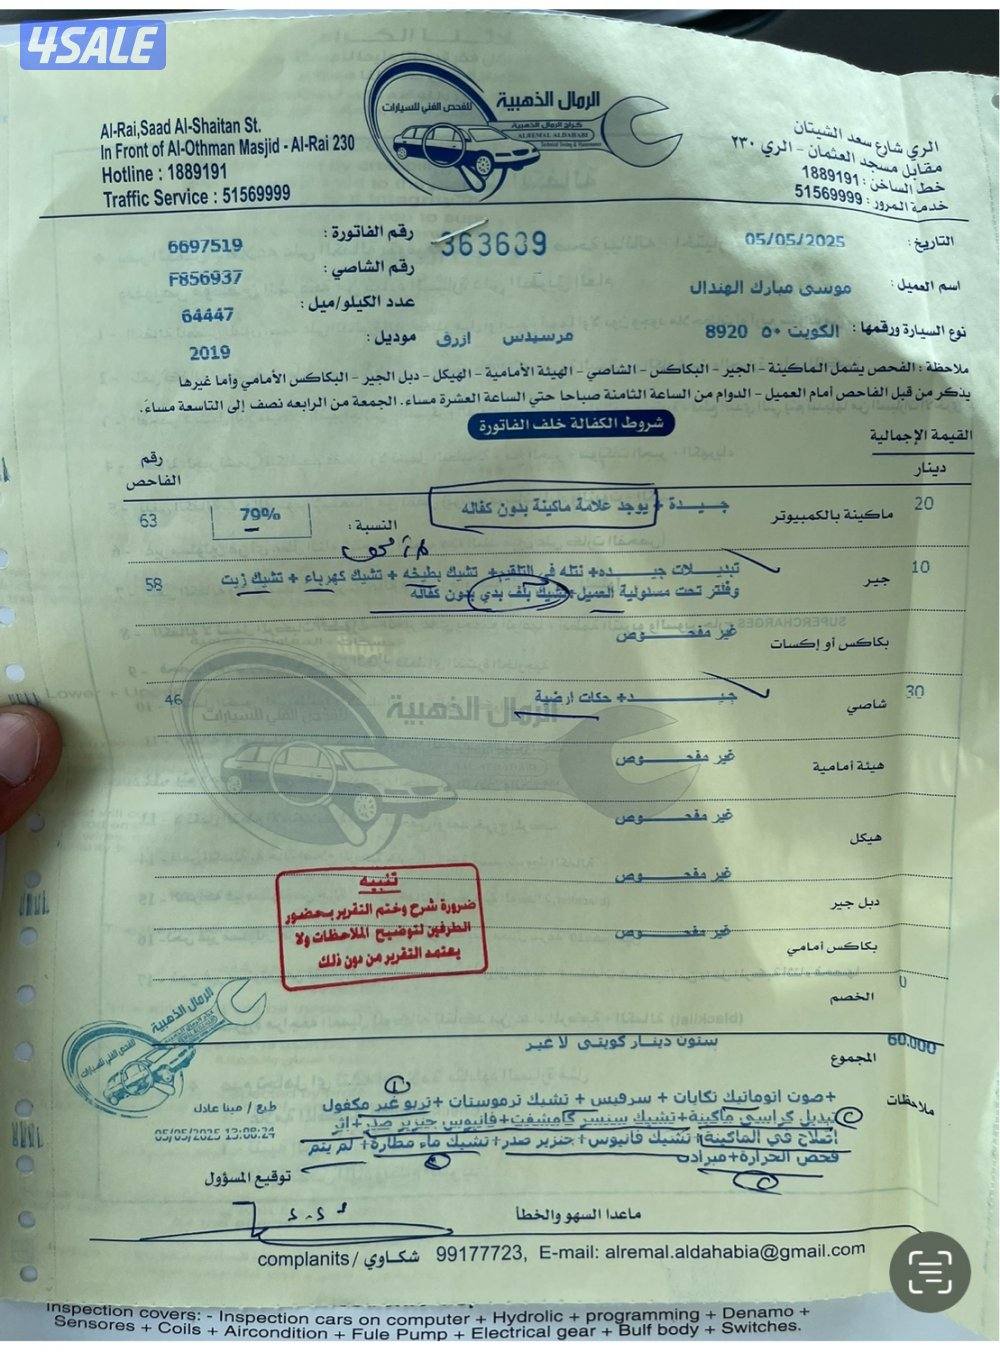 4SALE
الرمال الذهبية
للفحص الفني للسيارات
كراج الرمال الذهبية
ALREMAL ALDAHABI
Technical Testing & Maintenance
Al-Rai,Saad Al-Shaitan St.
In Front of Al-Othman Masjid - Al-Rai 230
Hotline : 1889191
Traffic Service : 51569999
الري شارع سعد الشيتان
مقابل مسجد العثمان - الري ٢٣٠
خط الساخن: 1889191
خدمة المرور: 51569999
التاريخ: 05/05/2025
363639
رقم الفاتورة: 6697519
اسم العميل: موسى مبارك الهندال
رقم الشاصي: F856937
عدد الكيلو/ميل: 64447
نوع السيارة ورقمها: الكويت ٥٠ 8920 مرسيدس ازرق
موديل: 2019
ملاحظة : الفحص يشمل الماكينة - الجير - البكاكس - الشاصي - الهيئة الأمامية - الهيكل - دبل الجير - البكاكس الأمامي وأما غيرها
يذكر من قبل الفاحص أمام العميل - الدوام من الساعة الثامنة صباحا حتي الساعة العشرة مساء. الجمعة من الرابعه نصف إلى التاسعة مساءً.
شروط الكفالة خلف الفاتورة
القيمة الإجمالية
دينار
رقم الفاحص
20 ماكينة بالكمبيوتر جيـــدة + يوجد علامة ماكينة بدون كفاله
النسبة: 79% 63
10 جير تبديـــلات جيـــده+ نتله في التلقيم+ تشيك بطيخه + تشيك كهرباء + تشيك زيت 58
وفلتر تحت مسئولية العميل+تشيك بلف بدي بدون كفاله
بكاكس أو إكسات غير مفحـــوص
30 شاصي جيـــد+ حكات ارضية 46
هيئة أمامية غير مفحـــوص
هيكل غير مفحـــوص
دبل جير غير مفحـــوص
بكاكس أمامي غير مفحـــوص
الخصم 0
تنبيه
ضرورة شرح وختم التقرير بحضور
الطرفين لتوضيح الملاحظات ولا
يعتمد التقرير من دون ذلك
60.000 المجموع ستون دينار كويتى لا غير
ملاحظات
+صوت اتوماتيك تكايات + سرفيس + تشيك ترموستات + تربو غير مكفول
تبديل كراسي ماكينة+ تشيك سنسر كامشفت+ فانيوس جنزير صدر+ اثر
اصلاح في الماكينة+ تشيك فانيوس+ جنزير صدر+ تشيك ماء مطارة+ لم يتم
فحص الحرارة+ميرادن
طبع / مينا عادل
05/05/2025 13:08:24
توقيع المسؤول
ماعدا السهو والخطأ
complanits / شكاوي 99177723, E-mail: alremal.aldahabia@gmail.com
Inspection covers: - Inspection cars on computer + Hydrolic + programming + Denamo +
Sensores + Coils + Aircondition + Fule Pump + Electrical gear + Bulf body + Switches.